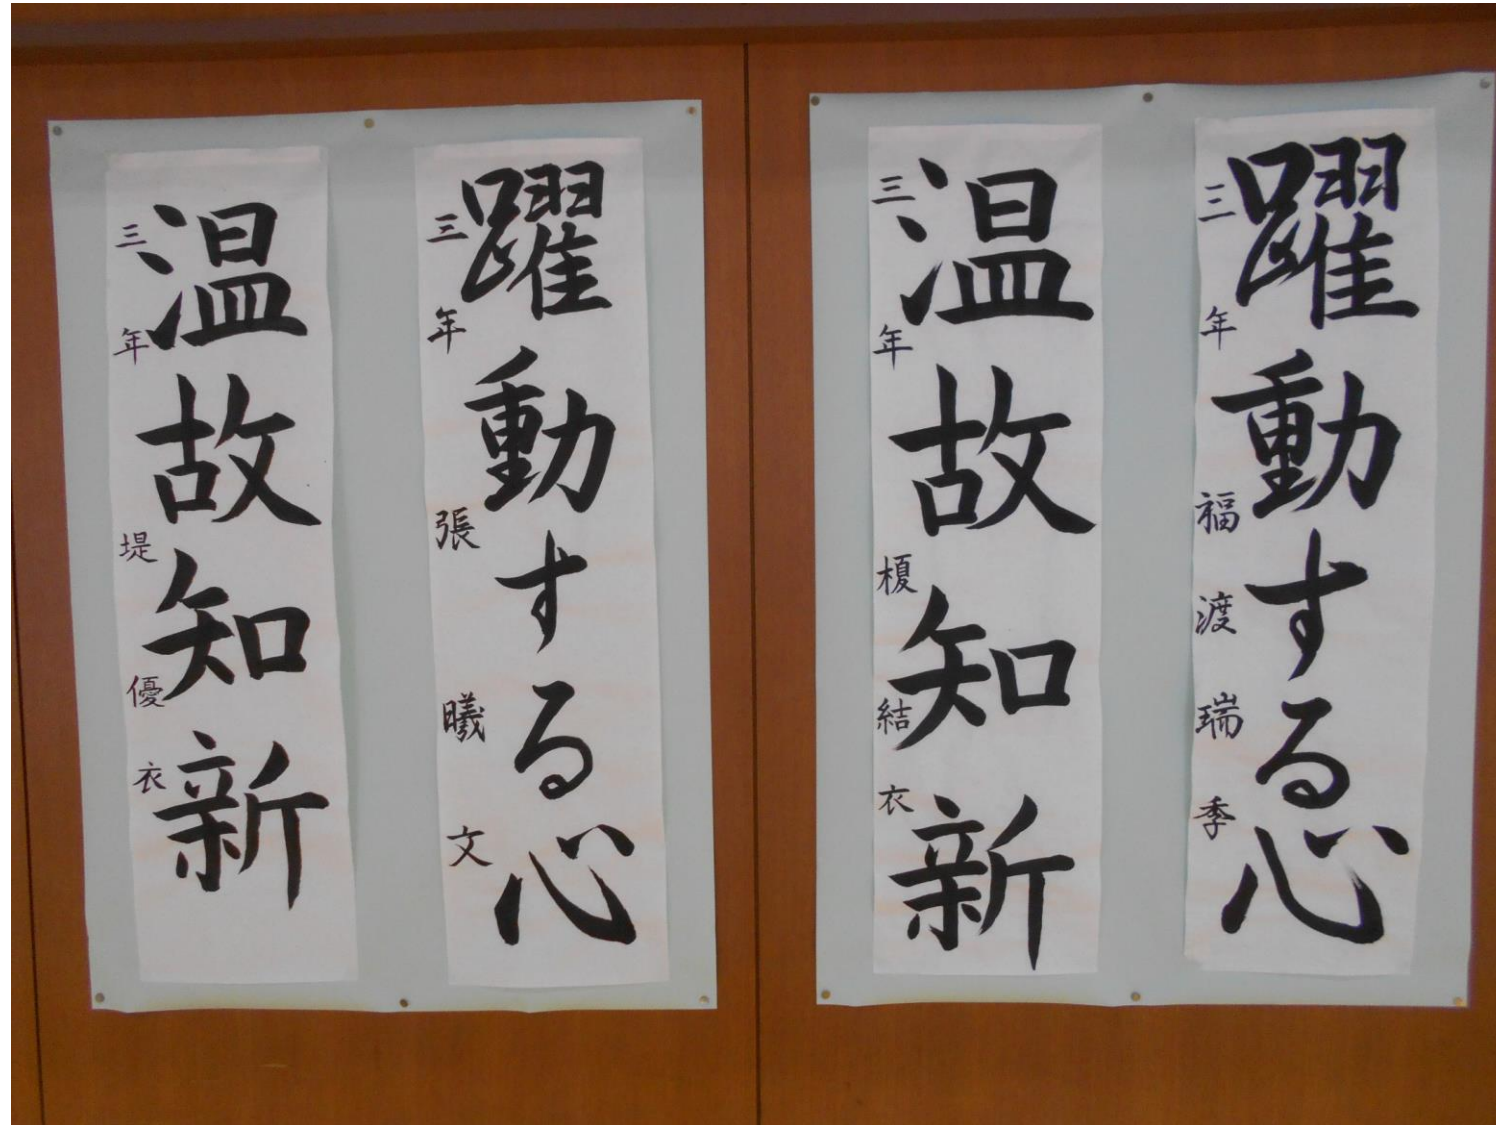 躍動する心
三年 福渡瑞季
温故知新
三年 榎結衣
躍動する心
三年 張曦文
温故知新
三年 堤優衣